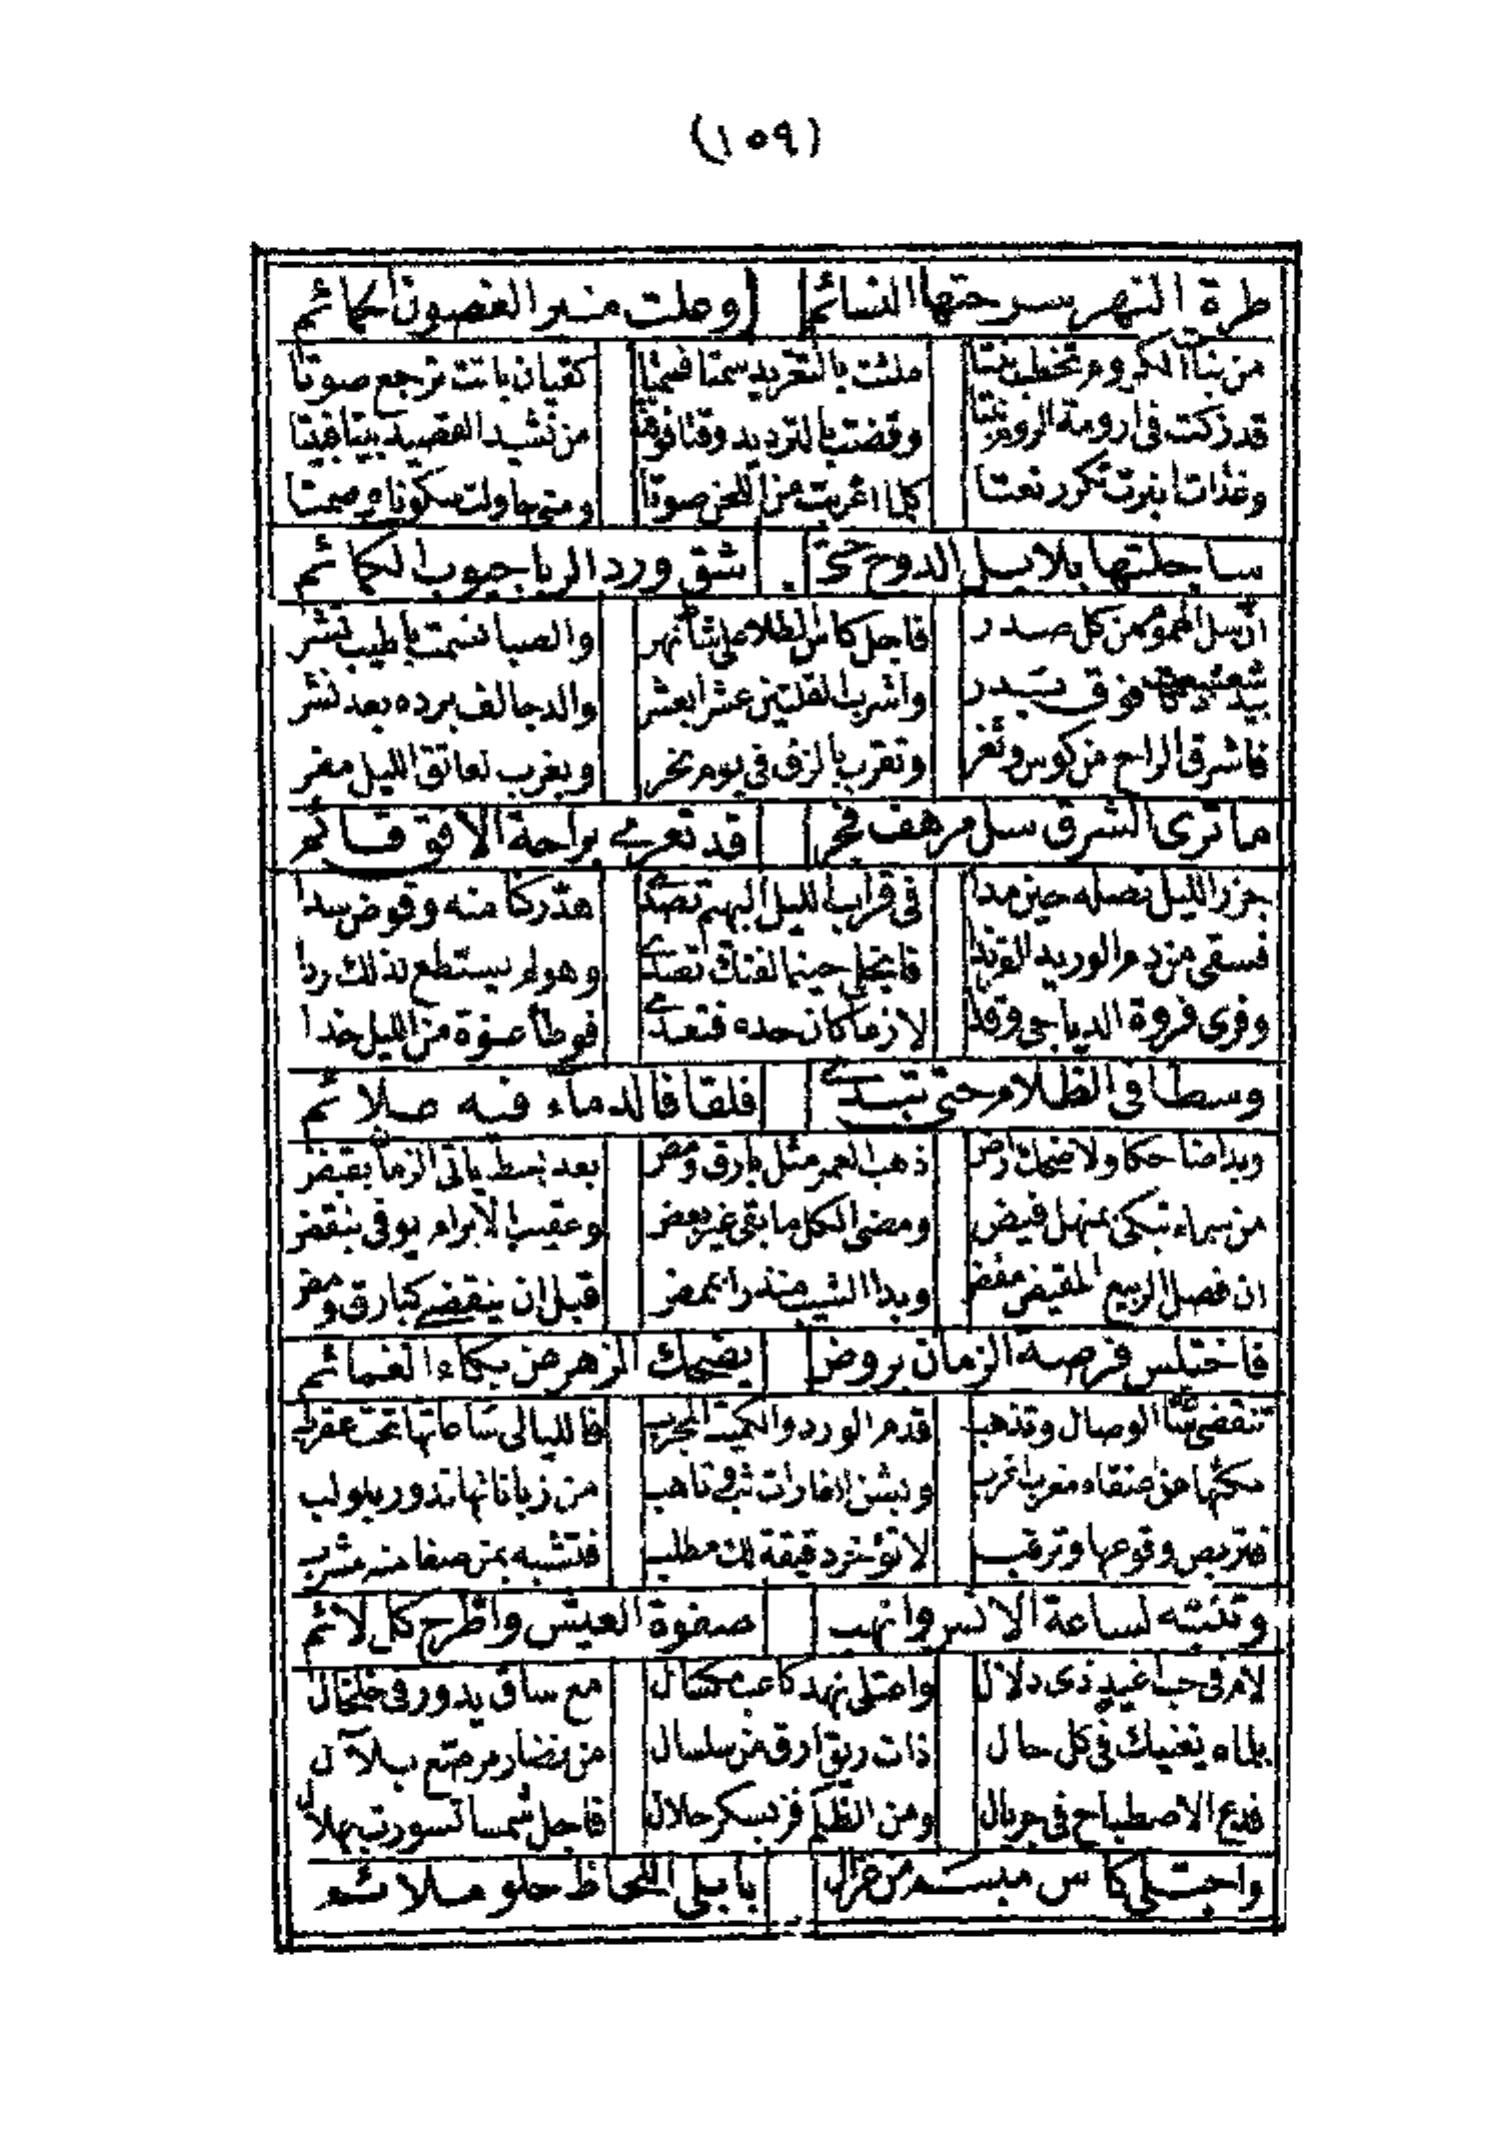 (١٥٩)
طرة النهر سرحتها النسائم وعلت منبر الغصون الحمائم
من بنات الكروم تخطب بنتا ملئت بالتغريد سمتا فسمتا كقيان باتت ترجع صوتا
قد زكت في ارومة الروم وقضت بالترديد وقتا فوقتا من نشيد القصيد بيتا فبيتا
وغذات ابنرت تكرر نعتا كلما اغربت من اللحن صوتا ومتى حاولت سكوتا وصمتا
ساجلتها بلابل الدوح حتى شق ورد الربا جيوب الكمائم
ان سل الهموم من كل صدر فاجل كاس الطلا على شاطئ نهر والصبا نسمت باطيب نشر
فوق بدر واشرب القلتين عشرا بعشر والدجا لف برده بعد نشر
فاشرق الراح من كوس وثغر وتقرب بالزق في يوم نحر وبغرب لعاتق الليل مفر
ما ترى الشرق سل مرهف فجر قد تعرى براحة الافق قائم
جزر الليل نصله حين مدا في قراب الليل البهيم تصدى هدركا منه وقوض سدا
فسقى من دم الوريد الفرند فانجلى حينما لفتك تصدى وهو لم يستطع لذلك ردا
وفرى فروة الدياجي وقد لازما كان حده فتعدى فوطأ عنوة من الليل خدا
وسطا في الظلام حتى تبدى فلقا فالدماء فيه صلائم
وبدا ضاحكا ولا ضحك ارض ذهب العمر مثل بارق ومض بعد بسط ياتي الزمان بقبض
من سماء تبكي بمنهل فيض ومضى الكل ما بقى غير بعض وعقيب الابرام يوفي بنقض
ان فصل الربيع المقيض مفض وبدا الشيب منذرا بمض قبل ان ينقضي كبارق ومض
فاختلس فرصة الزمان بروض يضحك الزهر من بكاء الغمائم
تنقضي الوصال وتذهب قدم الورد والكميت المجرب فالليالي ساعاتها تحت عقرب
عنقاء مغرب وبشن الغارات تاهب من زباناتها تدور بلولب
فتربص وقوعها وترقب لا تؤخر دقيقة لك مطلب فتشبه بمن صفا منه مشرب
وتنبه لساعة الانس وانهب صفوة العيش واطرح كل لائم
لام في حب اغيد ذي دلال واعتلى نهد كاعب مكسال مع ساق يدور في خلخال
بلماه يغنيك في كل حال ذات ريق ارق من سلسال من نضار مرصع بلآل
فدع الاصطباح في جريال ومن الظلم فز بسكر حلال فاجل شمسا تسورت بهلال
واجتلي كاس مبسم من غزال بابلى اللحاظ حلو ملائم